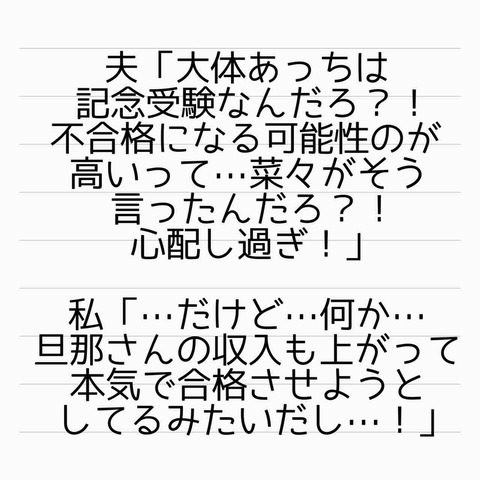 夫「大体あっちは
記念受験なんだろ？！
不合格になる可能性のが
高いって…菜々がそう
言ったんだろ？！
心配し過ぎ！」
私「…だけど…何か…
旦那さんの収入も上がって
本気で合格させようと
してるみたいだし…！」